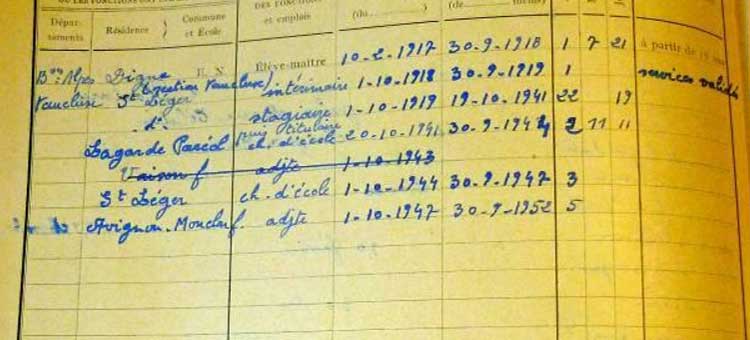 DES FONCTIONS
Commune
Dépar-
tements
Résidence
et École
et emplois
(du
(de
Bses Alpes Digne E. N. Élève-maître 10-2-1917 30-9-1918 1 7 21 à partir de
(question Vaucluse) services validés
Vaucluse St Léger intérimaire 1-10-1918 30-9-1919 1
d° stagiaire 1-10-1919 19-10-1941 22 19
puis titulaire
Lagarde Paréol ch. d'école 20-10-1941 30-9-1944 2 11 11
Vaison f adjte 1-10-1943
St Léger ch. d'école 1-10-1944 30-9-1947 3
Avignon-Monclar f. adjte 1-10-1947 30-9-1952 5